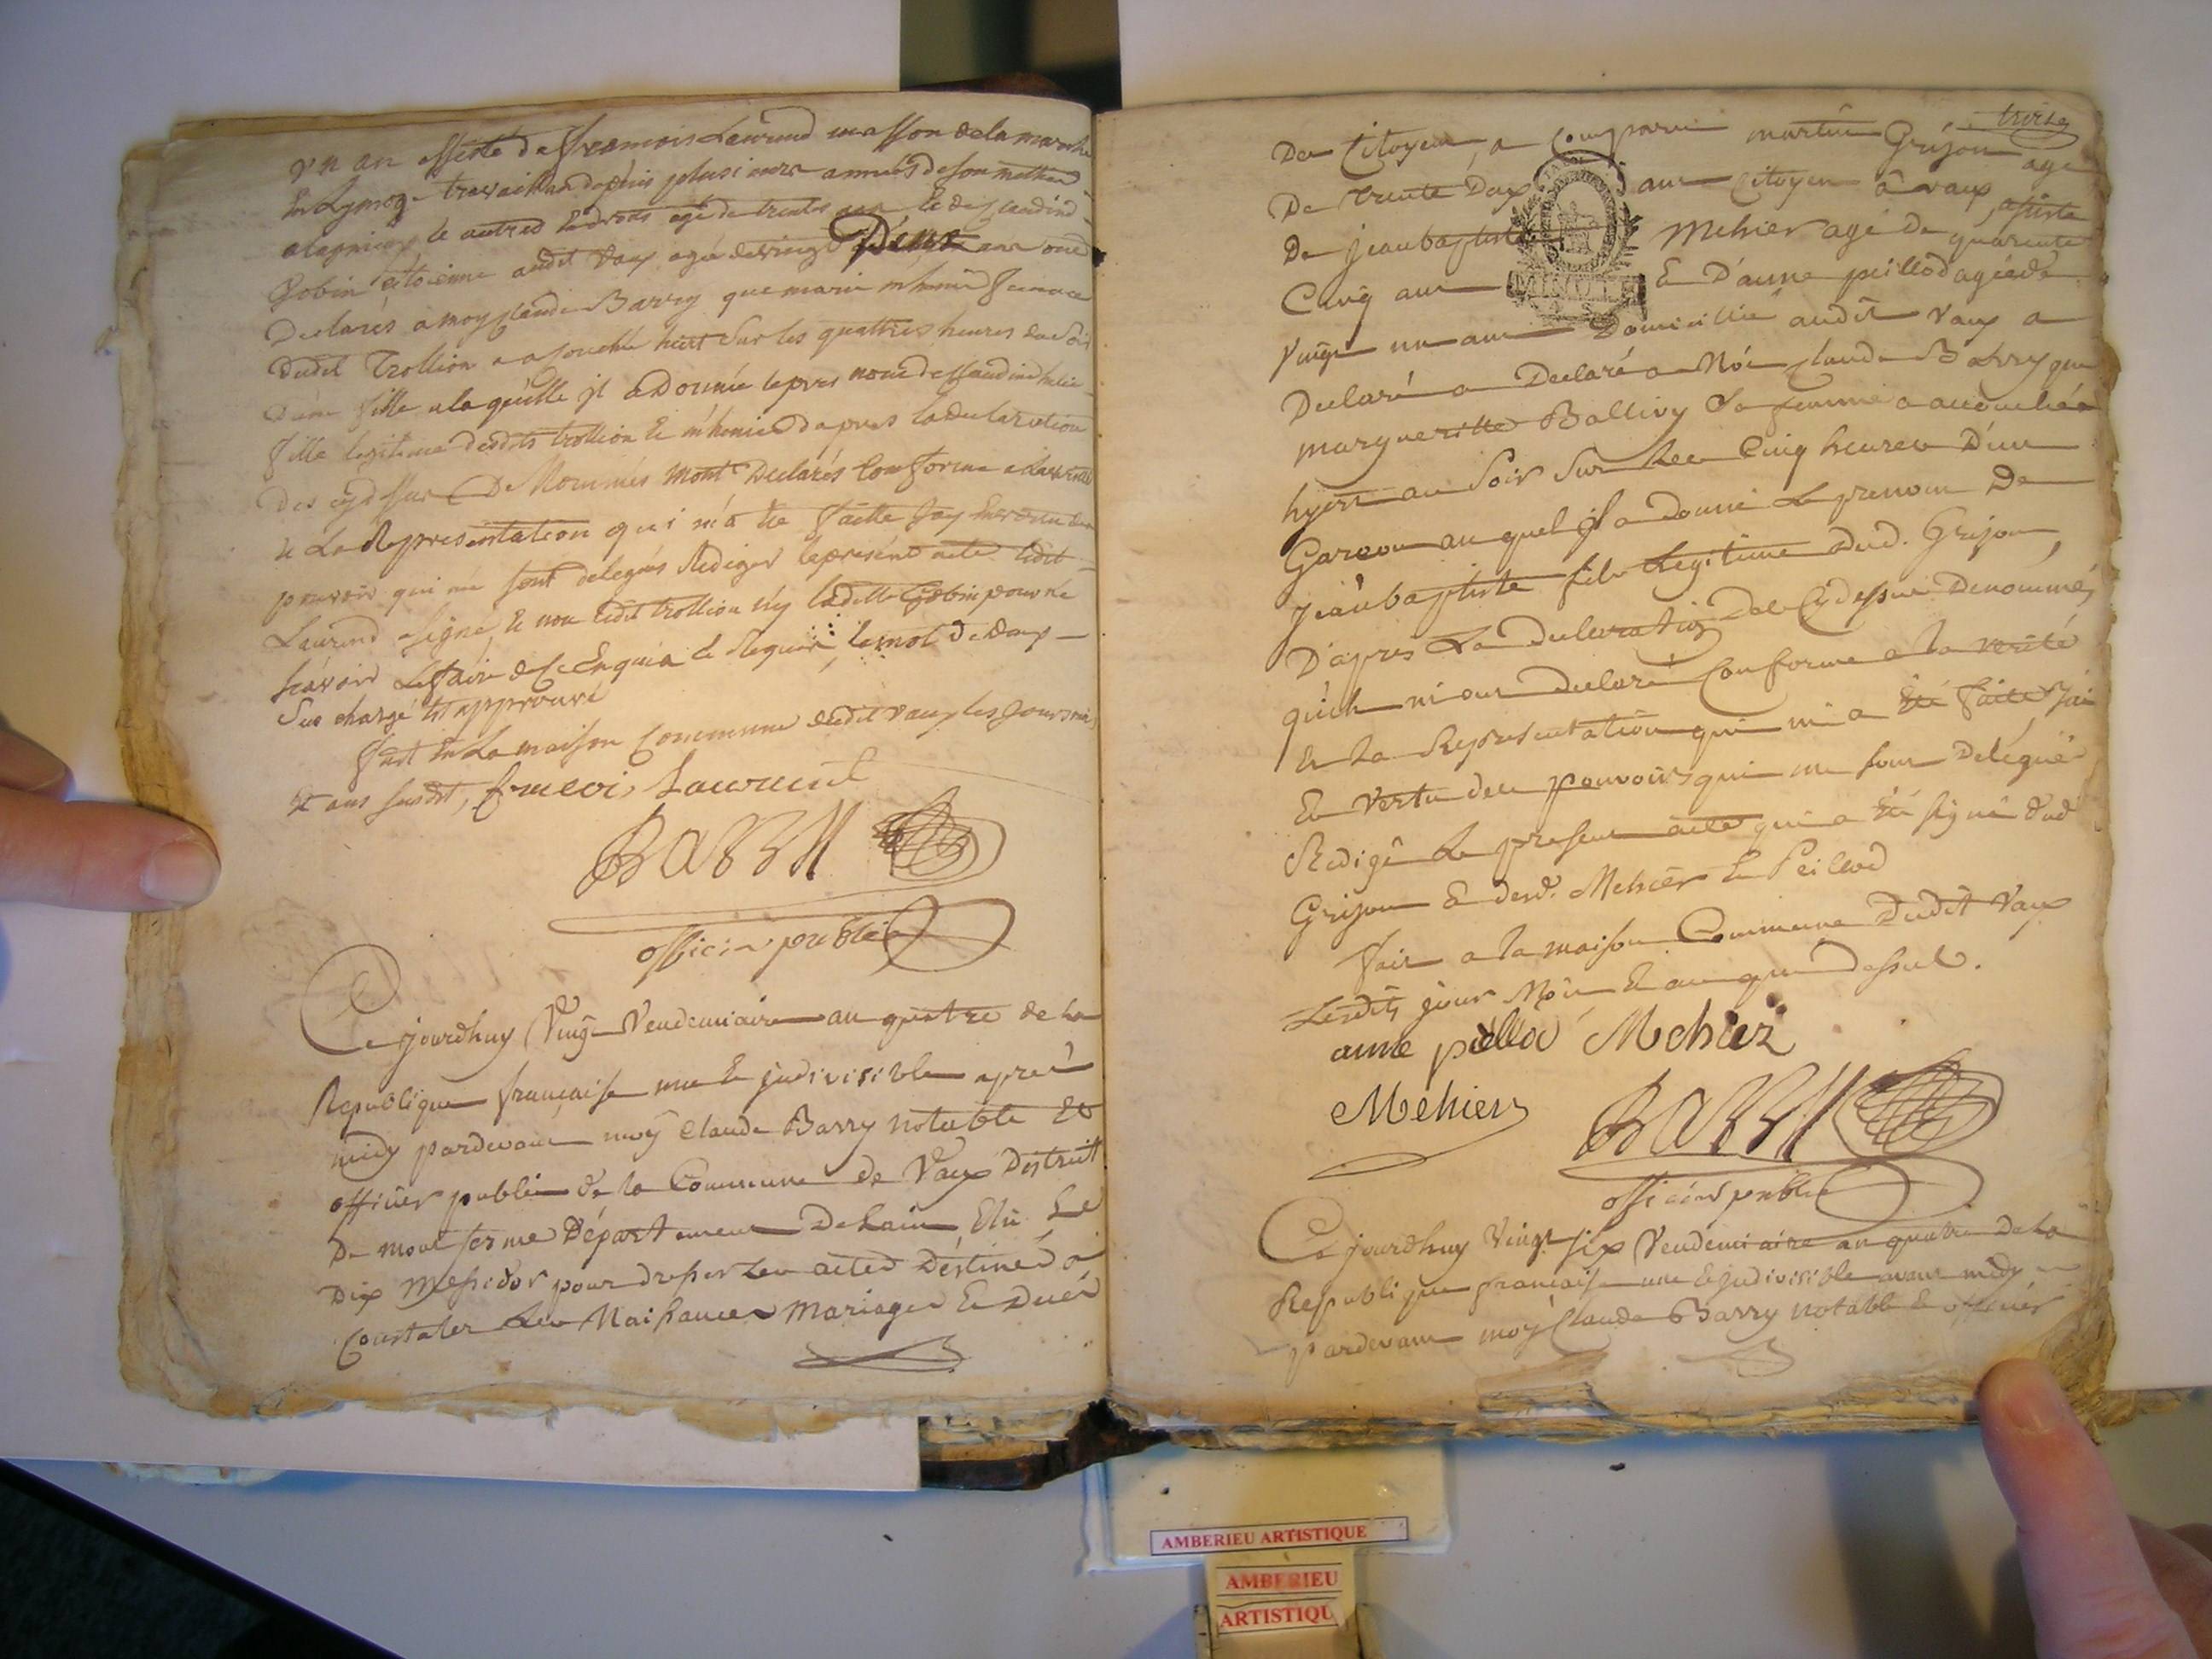 un an assisté de francois Laurend masson de la marche
En Lymoge travailland depuis plusieurs années de son metier
a lagnieux le autres endrois agé de trentes ans Et de Claudine
Gobin citoienne audit Vaux agée de vingt Deux ans ont
Declarés a moy Claude Barry que marie mehmier femme
dudit Trollion a acouché hier sur les quattres heures du soir
d'une fille a laquelle il a Donnée le prenom de Claudine
fille legitime desdits trollion Et mehmier d'apres la declaration
des cydessus De Nommés m'ont Declarés Conforme a la verité
Et La Representation qui m'a été faitte Jay En vertu des
pouvoir qui me sont delegués Rediger le présent acte ledit
Laurend a signé, Et non ledit trollion n'y ladite Gobin pour ne
sçavoir Le faire de ce Enquis Et Requis, le mot de deux
sus chargé Est approuvé
fait En La maison Commune dudit vaux les jours mois
Et ans susdit, francois Laurent
BARRY
officier public
Ce jourdhuy Vingt Vendemiaire an quatre de la
Republique francaise une Et indivisible après
midy pardevant moÿ Claude Barry notable Et
officier public de la Commune de Vaux District
De mont ferme Département De Lain, Elû Le
Dix messidor pour dresser Les actes Destinés a
Constater Les Naissances Mariages Et Décés
troise
Des Citoyens, a Comparu martin Grijon agé
De trente Deux ans Citoyen â vaux, assisté
De jeanbaptiste Mehier agé De quarente
Cinq ans Et D'anne peillod agée de
MINUTE
Vingt un ans Domicillié audit Vaux a
Declaré a Declaré a Nôe Claude Barry que
margueritte Ballivy Sa femme a accouchée
hyert au Soir Sur Les Cinq heures D'un
Garcon au quel il a donné Le prenom De
jeanbaptiste fils Legitime Dud. Grijon,
D'apres La Declaration Des Cydessus Denommés
qu'ils m'ont Declaré Conforme a la verité
Et la Representation qui m'a Eté faite, J'ai
En vertu des pouvoirs qui me sont Delegués
Redigé Le present acte qui a Eté signé dud
Grijon Et desd. Mehier Et Peillod
fait a la maison Commune Dudit Vaux
Lesdits jour Mois Et an que Dessus.
anne pellod Mehier
Mehier
BARRY
officier public
Ce jourdhuy Vingt six Vendemiaire an quatre De la
Republique francaise une Et indivisible avant midy
pardevant moÿ Claude Barry notable Et officier
AMBERIEU ARTISTIQUE
AMBERIEU
ARTISTIQU